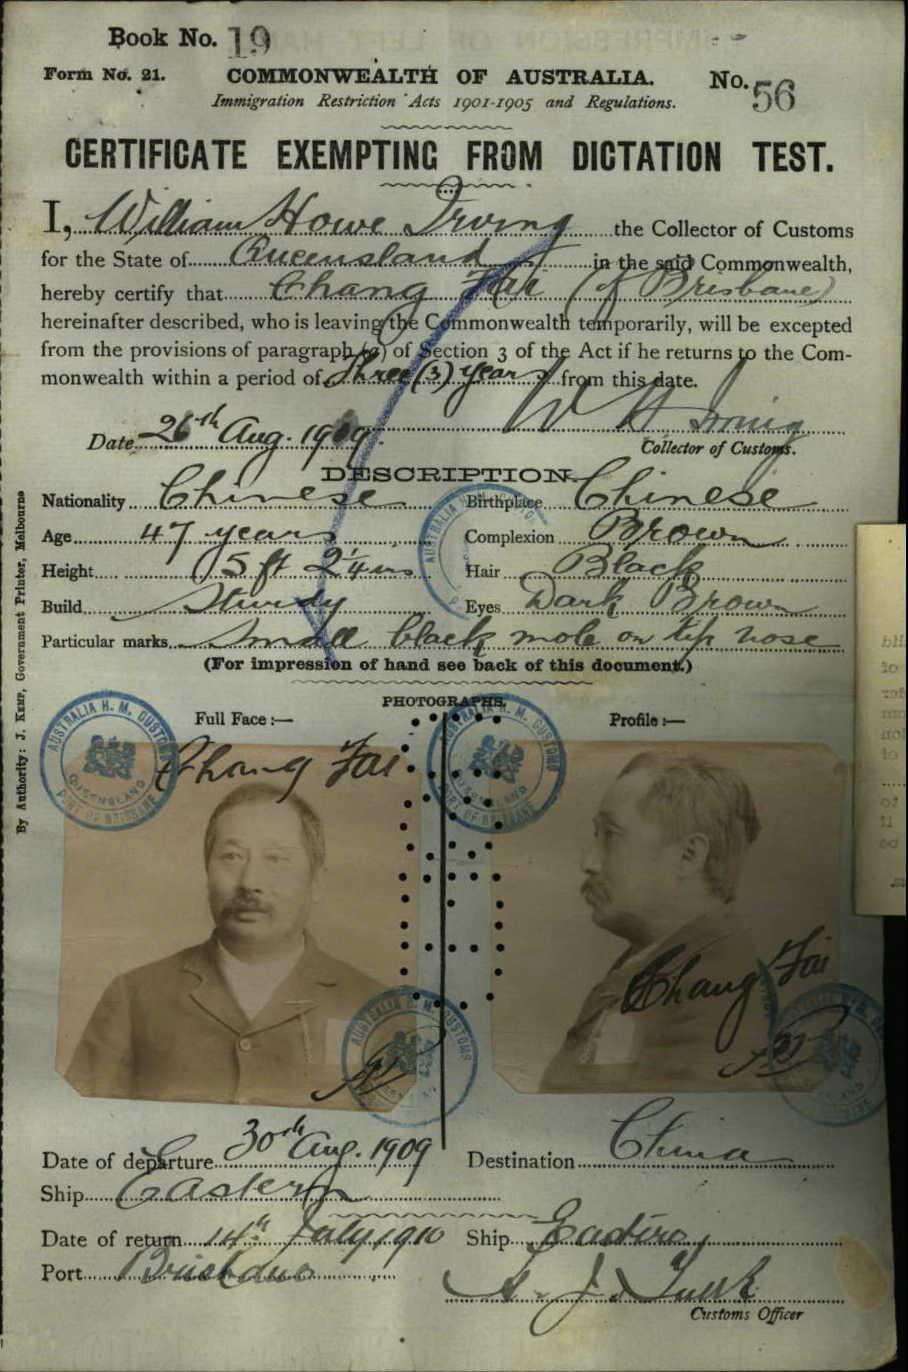 Book No. 19
Form No. 21.
COMMONWEALTH OF AUSTRALIA.
No. 56
Immigration Restriction Acts 1901-1905 and Regulations.
CERTIFICATE EXEMPTING FROM DICTATION TEST.
I, William Howe Irving the Collector of Customs
for the State of Queensland in the said Commonwealth,
hereby certify that Chang Fai (of Brisbane)
hereinafter described, who is leaving the Commonwealth temporarily, will be excepted
from the provisions of paragraph (a) of Section 3 of the Act if he returns to the Com-
monwealth within a period of three (3) years from this date.
W H Irving
Date 26th Aug. 1909.
Collector of Customs.
DESCRIPTION.
Nationality Chinese Birthplace Chinese
Age 47 years Complexion Brown
Height 5 ft 2¼ ins Hair Black
Build Sturdy Eyes Dark Brown
Particular marks Small black mole on tip nose
(For impression of hand see back of this document.)
PHOTOGRAPHS.
Full Face:— Profile:—
AUSTRALIA H. M. CUSTOMS
QUEENSLAND
PORT OF BRISBANE
AUSTRALIA H. M. CUSTOMS
QUEENSLAND
PORT OF BRISBANE
Chang Fai
Chang Fai
AUSTRALIA H. M. CUSTOMS
Date of departure 30th Aug. 1909 Destination China
Ship Eastern
Date of return 14th July 1910 Ship
Port Brisbane
Customs Officer
By Authority: J. Kemp, Government Printer, Melbourne